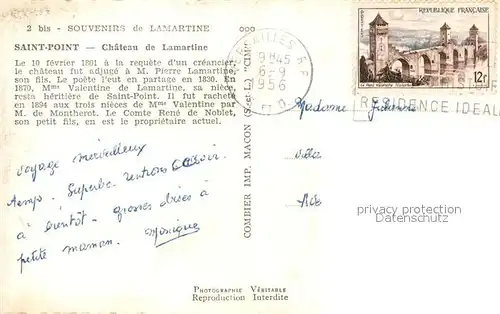 2 bis - SOUVENIRS DE LAMARTINE
SAINT-POINT — Château de Lamartine
Le 10 février 1801 à la requête d'un créancier,
le château fut adjugé à M. Pierre Lamartine,
son fils. Le poète l'eut en partage en 1830. En
1870, Mme Valentine de Lamartine, sa nièce,
resta héritière de Saint-Point. Il fut racheté
en 1894 aux trois nièces de Mme Valentine par
M. de Montherot. Le Comte René de Noblet,
son petit fils, en est le propriétaire actuel.
voyage merveilleux
Temps superbe. rentrons
à bientôt. grosses bises à
petite maman. Monique
COMBIER IMP. MACON (S-et-L) "CIM"
PHOTOGRAPHIE VÉRITABLE
Reproduction Interdite
9H45
6-9
1956
REPUBLIQUE FRANÇAISE
12F
RESIDENCE IDEAL
Madame
protection by copyright
Datenschutz